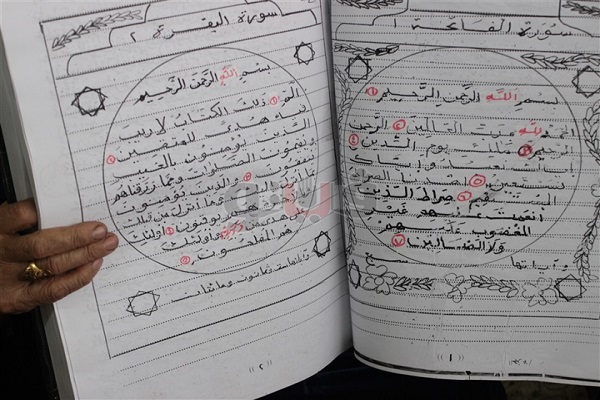 سورة الفاتحة ١
بسم الله الرحمن الرحيم ١
الحمد لله رب العالمين ٢ الرحمن
الرحيم ٣ مالك يوم الدين ٤
إياك نعبد وإياك
نستعين ٥ اهدنا الصراط
المستقيم ٦ صراط الذين
أنعمت عليهم غير
المغضوب عليهم
ولا الضالين ٧
وآياتها
((١))
سورة البقرة ٢
بسم الله الرحمن الرحيم
الم ١ ذلك الكتاب لا ريب
فيه هدى للمتقين ٢
الذين يؤمنون بالغيب
ويقيمون الصلوة ومما رزقناهم
ينفقون ٣ والذين يؤمنون
بما أنزل إليك وما أنزل من قبلك
هم يوقنون ٤ أولئك
على هدى من ربهم وأولئك
هم المفلحون ٥
وآياتها ستة وثمانون ومائتان
((٢))